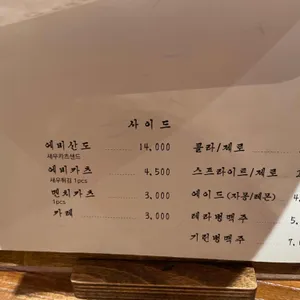 사이드
에비산도 14,000
새우카츠샌드
에비카츠 4,500
새우튀김 1pcs
멘치카츠 3,000
1pcs
카레 3,000
콜라/제로
스프라이트/제로 2
에이드(자몽/레몬) 4
테라병맥주 5,
기린병맥주 7,